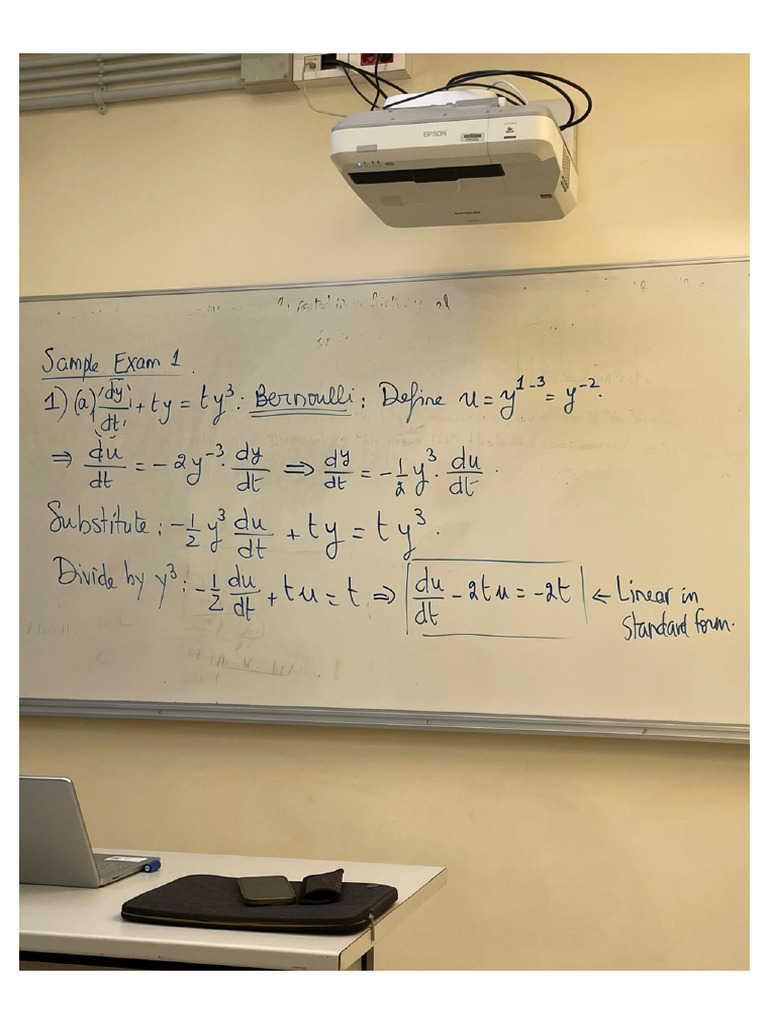 EPSON
Sample Exam 1.
1) (a) dy/dt + ty = ty³: Bernoulli; Define u = y¹⁻³ = y⁻².
⇒ du/dt = -2y⁻³ · dy/dt ⇒ dy/dt = -1/2 y³ · du/dt.
Substitute: -1/2 y³ du/dt + ty = ty³.
Divide by y³: -1/2 du/dt + tu = t ⇒ du/dt - 2tu = -2t ← Linear in
Standard form.